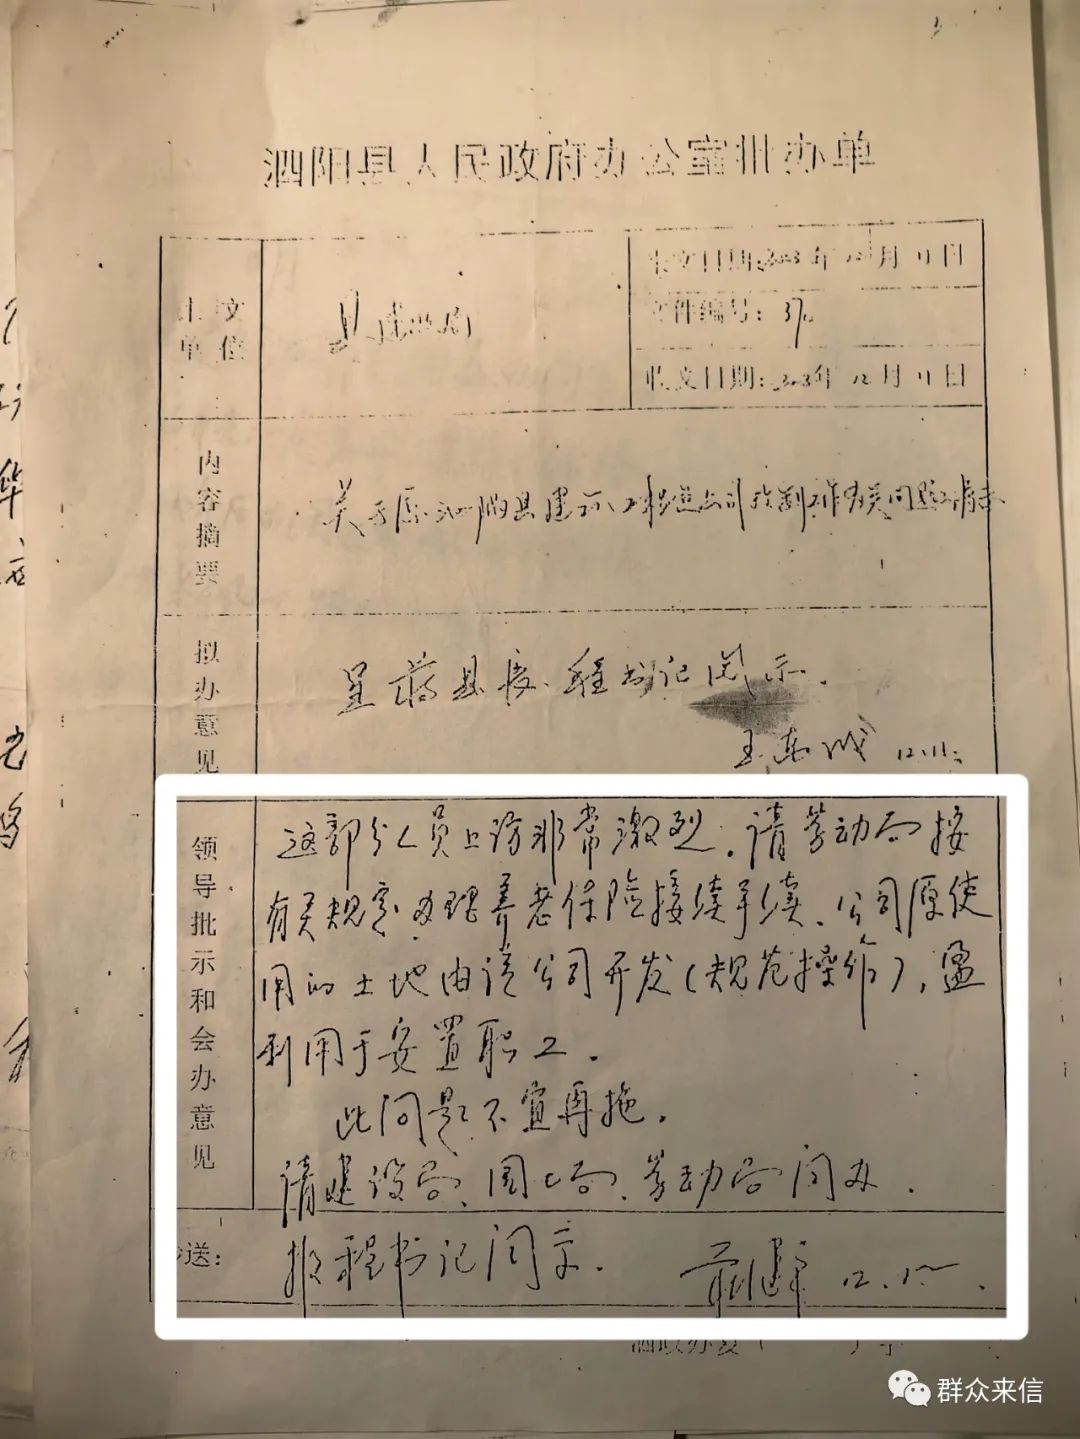 泗阳县人民政府办公室批办单
来文
单位
来文日期:2003年12月11日
文件编号:370
收文日期:2003年12月11日
内容摘要
关于原泗阳县建筑工程总公司改制工作有关问题的
拟办意见
呈蒋县长、程书记阅示.
王东成 12.11.
领导批示和会办意见
这部分人员上访非常激烈.请劳动局按
有关规定办理养老保险接续手续、公司原使
用的土地由该公司开发(规范操作),盈
利用于安置职工.
此问题不宜再拖.
请建设局、国土局、劳动局阅办.
送:
报程书记阅示.
12.
群众来信